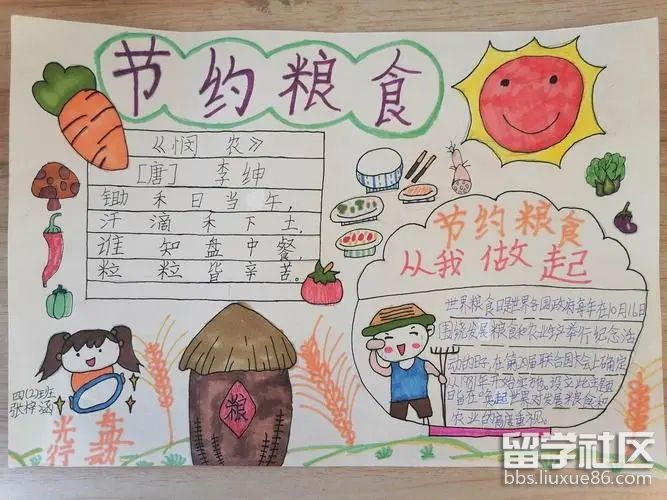 节约粮食
《悯农》
[唐] 李绅
锄禾日当午,
汗滴禾下土,
谁知盘中餐,
粒粒皆辛苦。
节约粮食
从我做起
世界粮食日是世界各国政府每年在10月16日
围绕发展粮食和农业生产举行纪念活
动的日子,在第20届联合国大会上确定
从1981年开始实施,设立此主题
日旨在唤起世界对发展粮食和
农业的高度重视。
粮
四(2)班
张梓涵
光盘
行动
留学社区
bbs.liuxue86.com